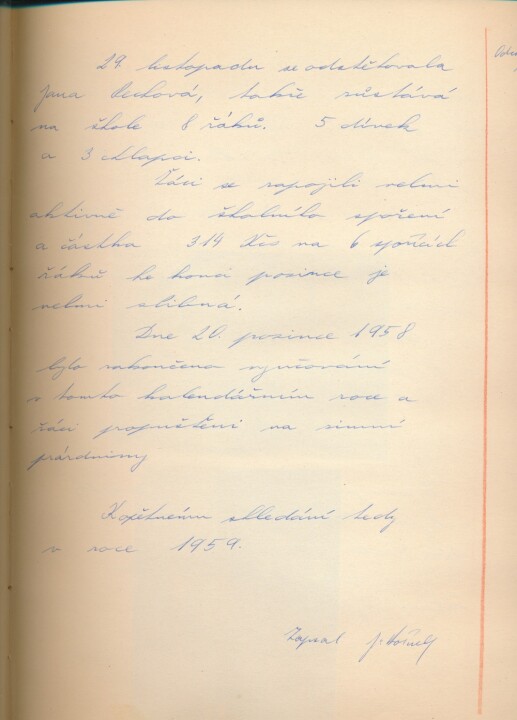 29. listopadu se odstěhovala
Jana Pechová, takže zůstává
na škole 8 žáků. 5 dívek
a 3 chlapci.
Žáci se zapojili velmi
aktivně do školního spoření
a částka 314 Kčs na 6 spořících
žáků ke konci prosince je
velmi slibná.
Dne 20. prosince 1958
bylo zakončeno vyučování
v tomto kalendářním roce a
žáci propuštěni na zimní
prázdniny
K opětnému shledání tedy
v roce 1959.
Zapsal J.